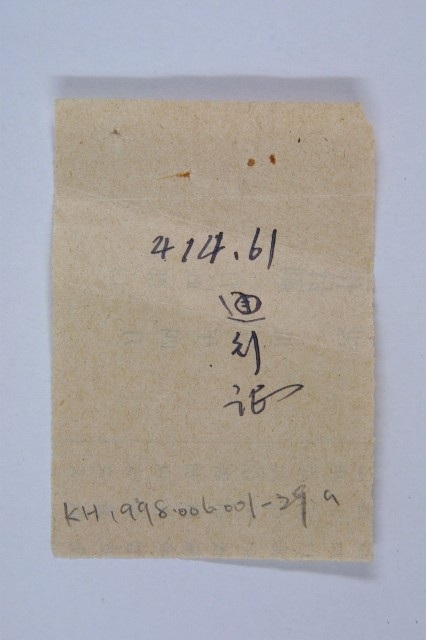 414.61
通行证
KH1998.006.001-29 a